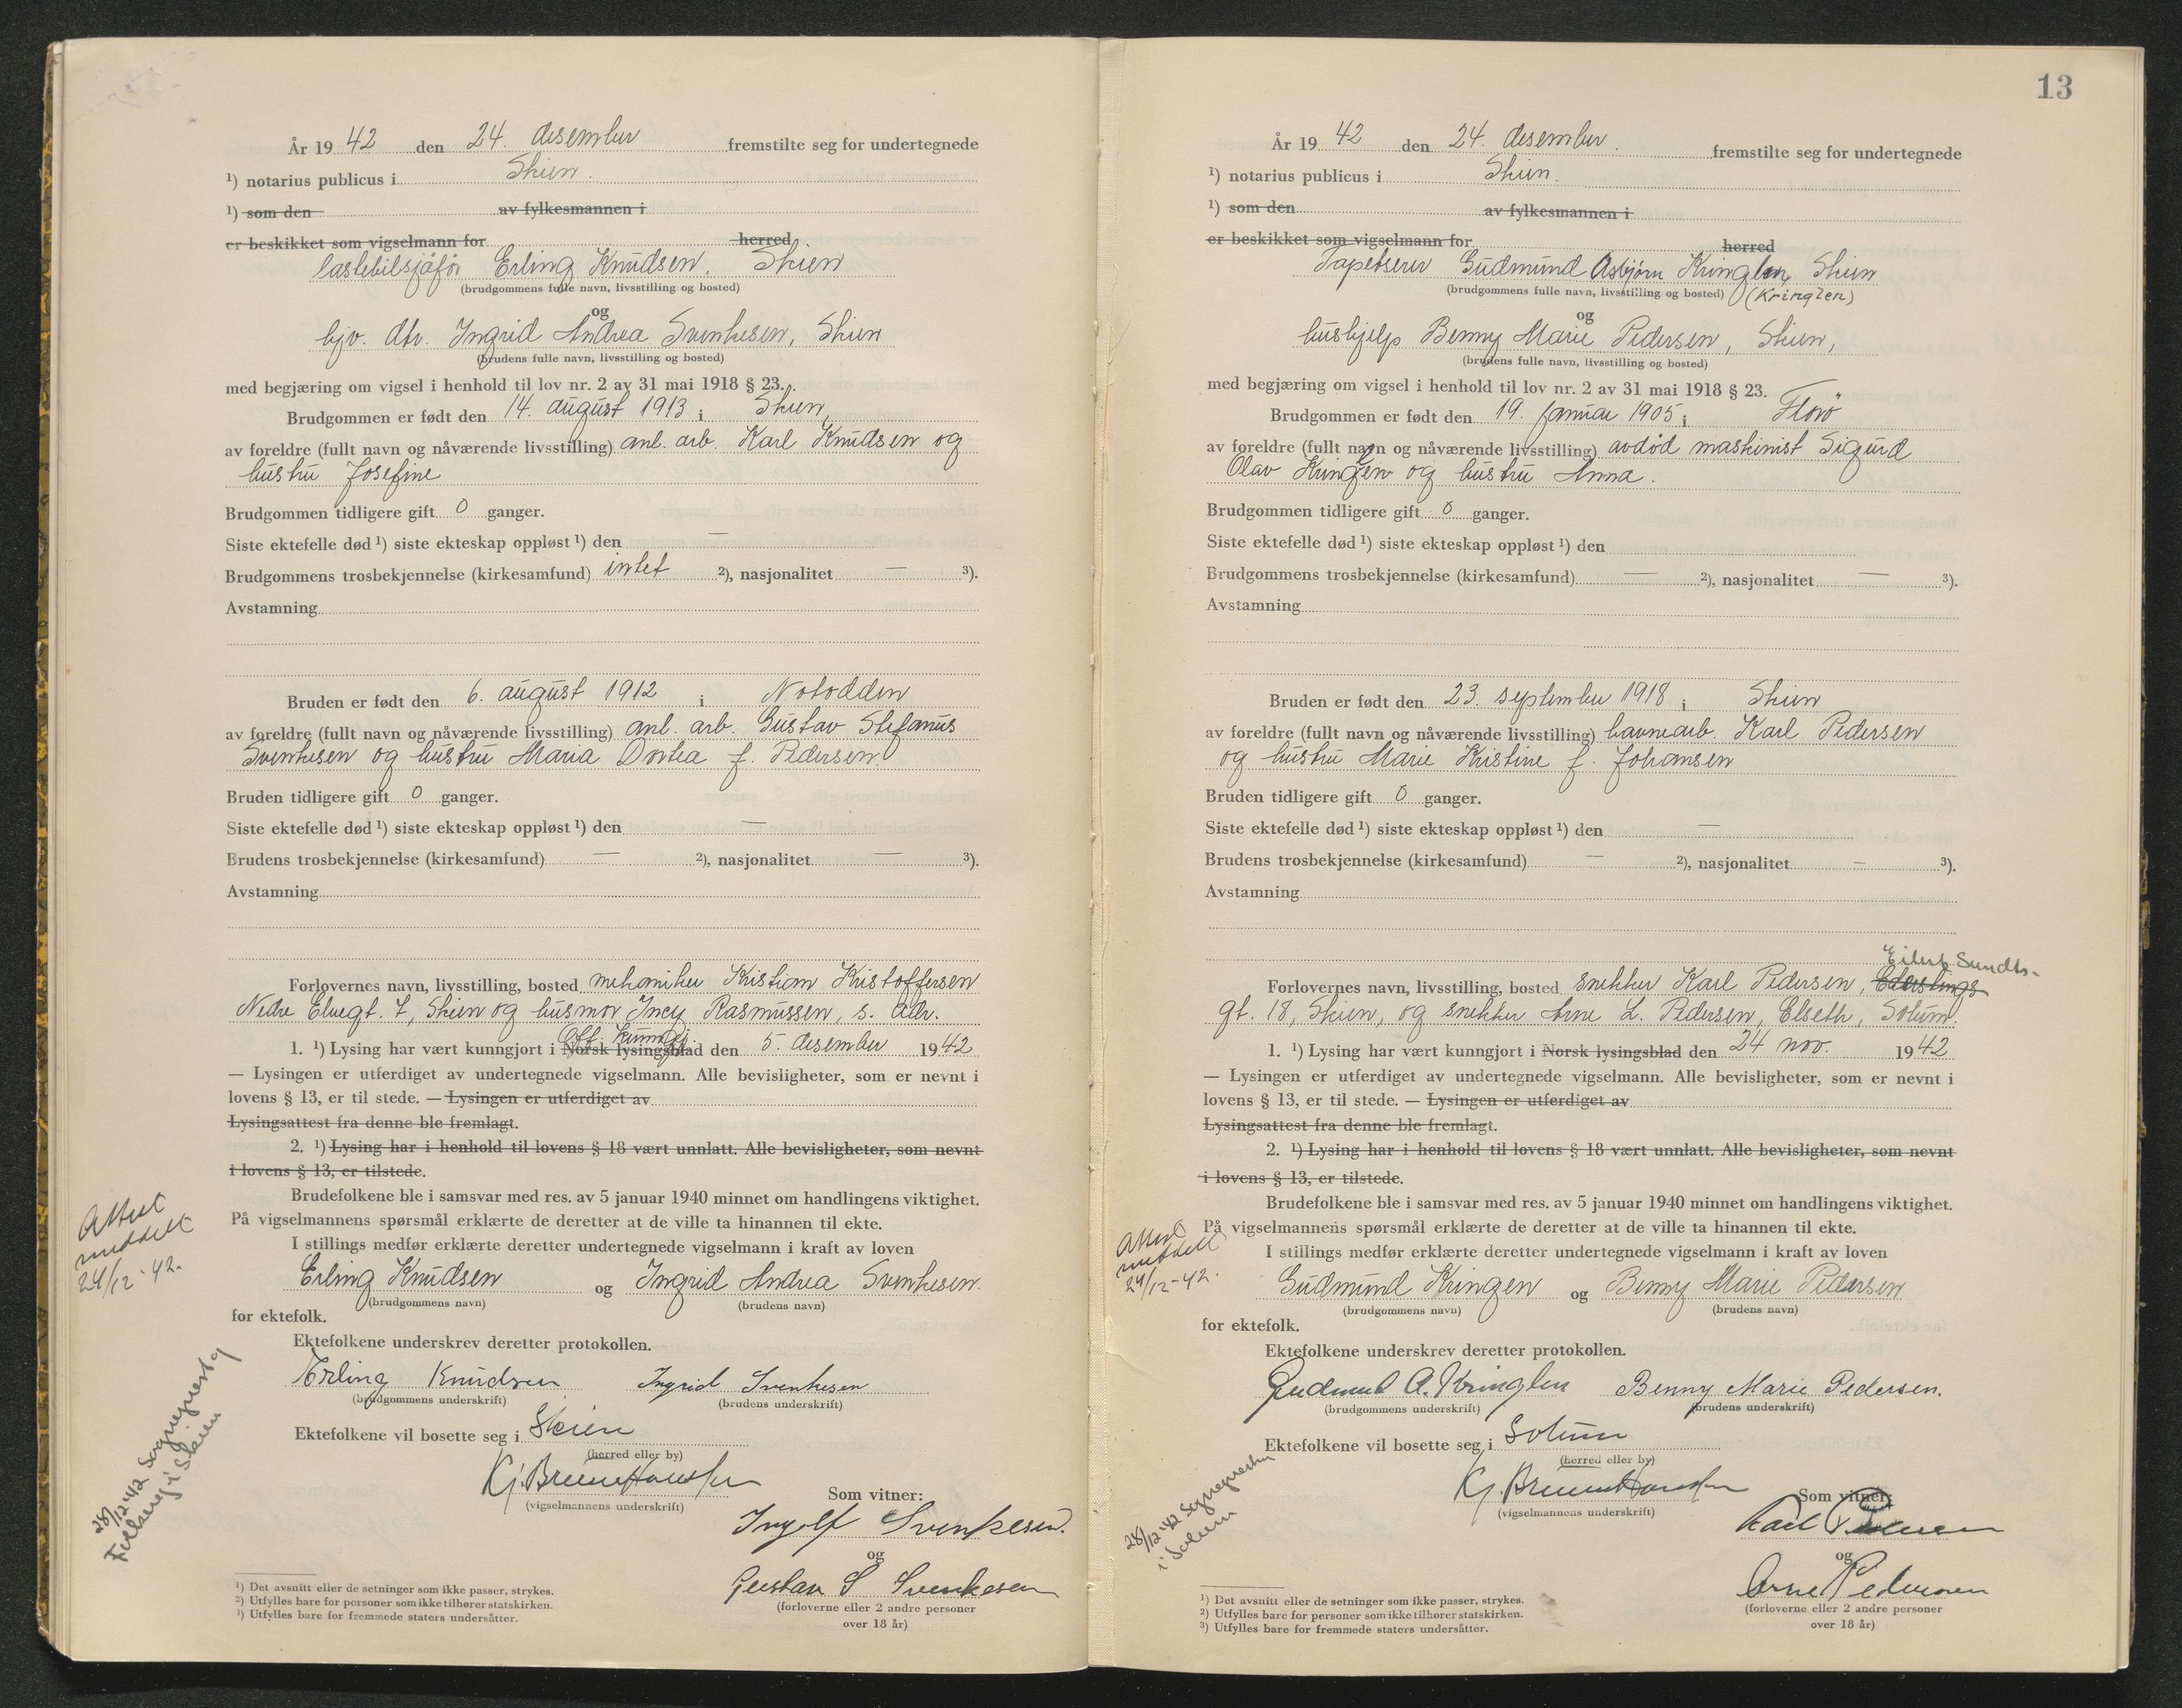 År 1942 den 24. desember fremstilte seg for undertegnede
¹) notarius publicus i Skien.
¹) som den av fylkesmannen i
er beskikket som vigselmann for herred
lastebilsjåfør Erling Knudsen, Skien
(brudgommens fulle navn, livsstilling og bosted)
og
hjv. dtr. Ingrid Andrea Svenkesen, Skien
(brudens fulle navn, livsstilling og bosted)
med begjæring om vigsel i henhold til lov nr. 2 av 31 mai 1918 § 23.
Brudgommen er født den 14. august 1913 i Skien,
av foreldre (fullt navn og nåværende livsstilling) anl. arb. Karl Knudsen og
hustru Josefine
Brudgommen tidligere gift 0 ganger.
Siste ektefelle død ¹) siste ekteskap oppløst ¹) den —
Brudgommens trosbekjennelse (kirkesamfund) intet ²), nasjonalitet — ³).
Avstamning
Bruden er født den 6. august 1912 i Notodden
av foreldre (fullt navn og nåværende livsstilling) anl. arb. Gustav Stefanus
Svenkesen og hustru Maria Dortea f. Pedersen.
Bruden tidligere gift 0 ganger.
Siste ektefelle død ¹) siste ekteskap oppløst ¹) den —
Brudens trosbekjennelse (kirkesamfund) — ²), nasjonalitet — ³).
Avstamning
Forlovernes navn, livsstilling, bosted mekaniker Kristian Kristoffersen
Nedre Elvegt. 7, Skien og husmor Incy Rasmussen, s. adr.
Off. kunngj.
1. ¹) Lysing har vært kunngjort i Norsk lysingsblad den 5. desember 1942
— Lysingen er utferdiget av undertegnede vigselmann. Alle bevisligheter, som er nevnt i
lovens § 13, er til stede. — Lysingen er utferdiget av
Lysingsattest fra denne ble fremlagt.
2. ¹) Lysing har i henhold til lovens § 18 vært unnlatt. Alle bevisligheter, som nevnt
i lovens § 13, er tilstede.
Brudefolkene ble i samsvar med res. av 5 januar 1940 minnet om handlingens viktighet.
På vigselmannens spørsmål erklærte de deretter at de ville ta hinannen til ekte.
I stillings medfør erklærte deretter undertegnede vigselmann i kraft av loven
Erling Knudsen og Ingrid Andrea Svenkesen.
(brudgommens navn) (brudens navn)
for ektefolk.
Ektefolkene underskrev deretter protokollen.
Erling Knudsen Ingrid Svenkesen
(brudgommens underskrift) (brudens underskrift)
Ektefolkene vil bosette seg i Skien
(herred eller by)
Kj. Bruun Hanssen
(vigselmannens underskrift)
Som vitner:
Ingolf Svenkesen.
og
Gustav S Svenkesen
(forloverne eller 2 andre personer
over 18 år)
Attest
meddelt
24/12-42.
28/12 42 Sogneprest og
Folkereg i Skien
¹) Det avsnitt eller de setninger som ikke passer, strykes.
²) Utfylles bare for personer som ikke tilhører statskirken.
³) Utfylles bare for fremmede staters undersåtter.
13
År 1942 den 24. desember. fremstilte seg for undertegnede
¹) notarius publicus i Skien.
¹) som den av fylkesmannen i
er beskikket som vigselmann for herred
Tapetserer Gudmund Asbjørn Kringlen, Skien
(brudgommens fulle navn, livsstilling og bosted) (Kringlen)
og
hushjelp Benny Marie Pedersen, Skien,
(brudens fulle navn, livsstilling og bosted)
med begjæring om vigsel i henhold til lov nr. 2 av 31 mai 1918 § 23.
Brudgommen er født den 19. januar 1905 i Florö
av foreldre (fullt navn og nåværende livsstilling) avdød maskinist Sigurd
Olav Kringlen og hustru Anna.
Brudgommen tidligere gift 0 ganger.
Siste ektefelle død ¹) siste ekteskap oppløst ¹) den
Brudgommens trosbekjennelse (kirkesamfund) — ²), nasjonalitet — ³).
Avstamning
Bruden er født den 23. september 1918 i Skien
av foreldre (fullt navn og nåværende livsstilling) havnearb. Karl Pedersen
og hustru Marie Kristine f. Johansen
Bruden tidligere gift 0 ganger.
Siste ektefelle død ¹) siste ekteskap oppløst ¹) den —
Brudens trosbekjennelse (kirkesamfund) — ²), nasjonalitet — ³).
Avstamning
Eilert Sundts-
Forlovernes navn, livsstilling, bosted snekker Karl Pedersen,
gt. 18, Skien, og snekker Arne L. Pedersen, Elseth, Solum.
1. ¹) Lysing har vært kunngjort i Norsk lysingsblad den 24 nov. 1942
— Lysingen er utferdiget av undertegnede vigselmann. Alle bevisligheter, som er nevnt i
lovens § 13, er til stede. — Lysingen er utferdiget av
Lysingsattest fra denne ble fremlagt.
2. ¹) Lysing har i henhold til lovens § 18 vært unnlatt. Alle bevisligheter, som nevnt
i lovens § 13, er tilstede.
Brudefolkene ble i samsvar med res. av 5 januar 1940 minnet om handlingens viktighet.
På vigselmannens spørsmål erklærte de deretter at de ville ta hinannen til ekte.
I stillings medfør erklærte deretter undertegnede vigselmann i kraft av loven
Gudmund Kringen og Benny Marie Pedersen
(brudgommens navn) (brudens navn)
for ektefolk.
Ektefolkene underskrev deretter protokollen.
Gudmund A. Kringlen Benny Marie Pedersen.
(brudgommens underskrift) (brudens underskrift)
Ektefolkene vil bosette seg i Solum
(herred eller by)
Kj. Bruun Hanssen
(vigselmannens underskrift)
Som vitner:
Karl Pedersen
og
Arne Pedersen
(forloverne eller 2 andre personer
over 18 år)
Attest
meddelt
24/12-42.
28/12-42 Sognepresten
i Solum
¹) Det avsnitt eller de setninger som ikke passer, strykes.
²) Utfylles bare for personer som ikke tilhører statskirken.
³) Utfylles bare for fremmede staters undersåtter.